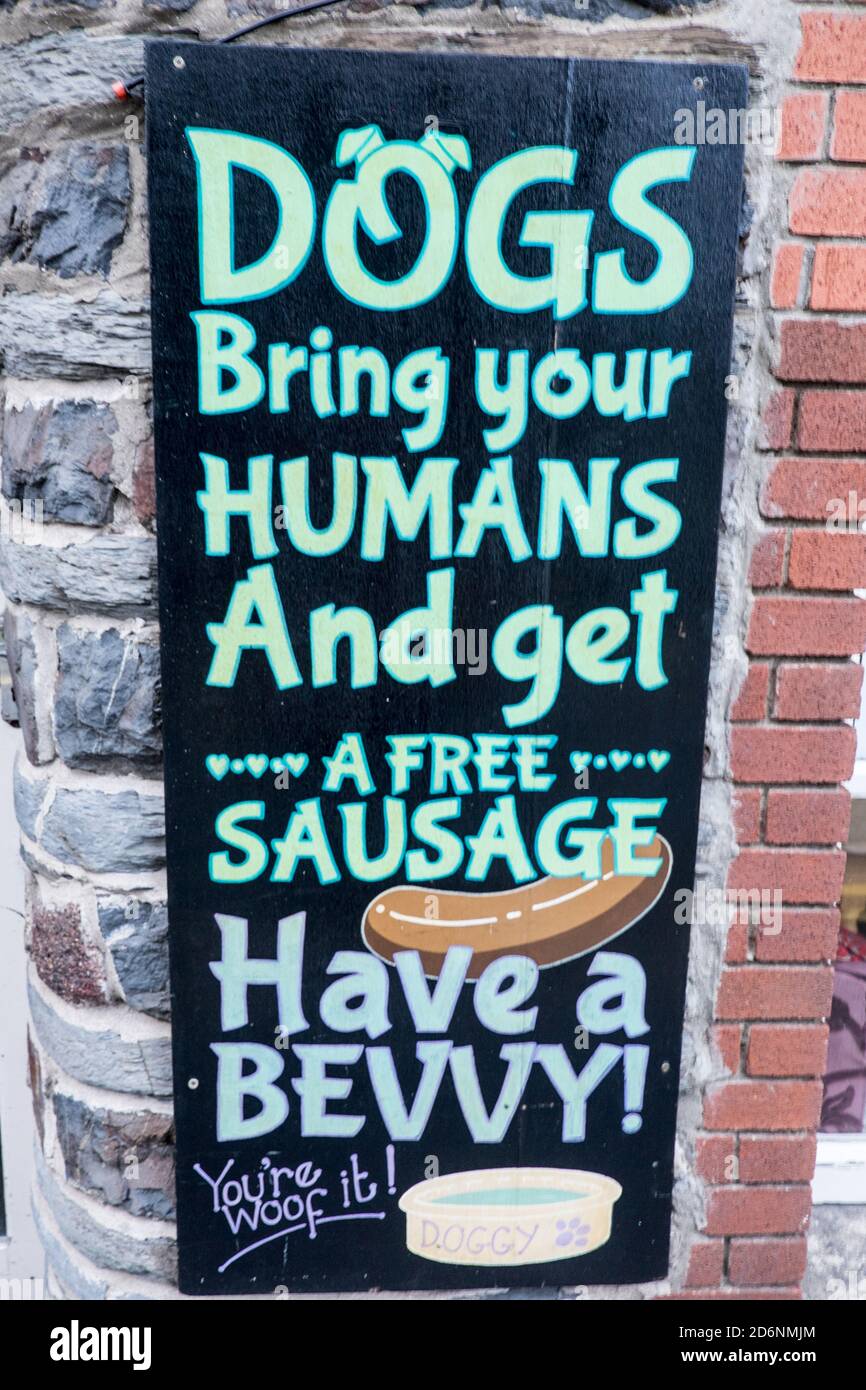 DOGS
Bring your
HUMANS
And get
A FREE
SAUSAGE
Have a
BEVVY!
You're
WOOF it!
DOGGY
alamy
Image ID: 2D6NMJM
www.alamy.com